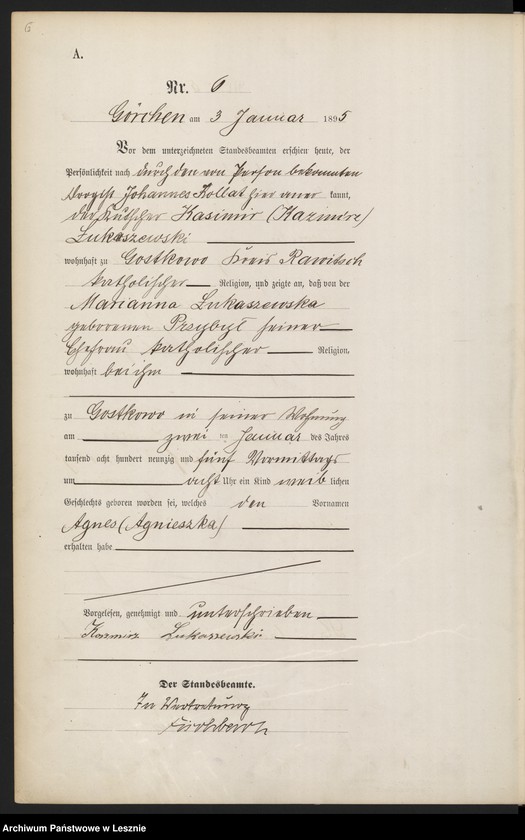 6
A.
Nr. 6
Görchen am 3 Januar 1895
Vor dem unterzeichneten Standesbeamten erschien heute, der
Persönlichkeit nach durch den von Person bekannten
Johannes Kollat kannt,
der Kutscher Kasimir (Kazmirz)
Lukaszewski
wohnhaft zu Gostkowo Kreis Rawitsch
katholischer Religion, und zeigte an, daß von der
Marianna Lukaszewska
geborenen Przybyl seiner
Ehefrau katholischer Religion,
wohnhaft bei ihm
zu Gostkowo in seiner Wohnung
am zwei ten Januar des Jahres
tausend acht hundert neunzig und fünf Vormittags
um acht Uhr ein Kind weib lichen
Geschlechts geboren worden sei, welches den Vornamen
Agnes (Agnieszka)
erhalten habe
Vorgelesen, genehmigt und unterschrieben
Kazmirz Lukaszewski
Der Standesbeamte.
In Vertretung
Archiwum Państwowe w Lesznie